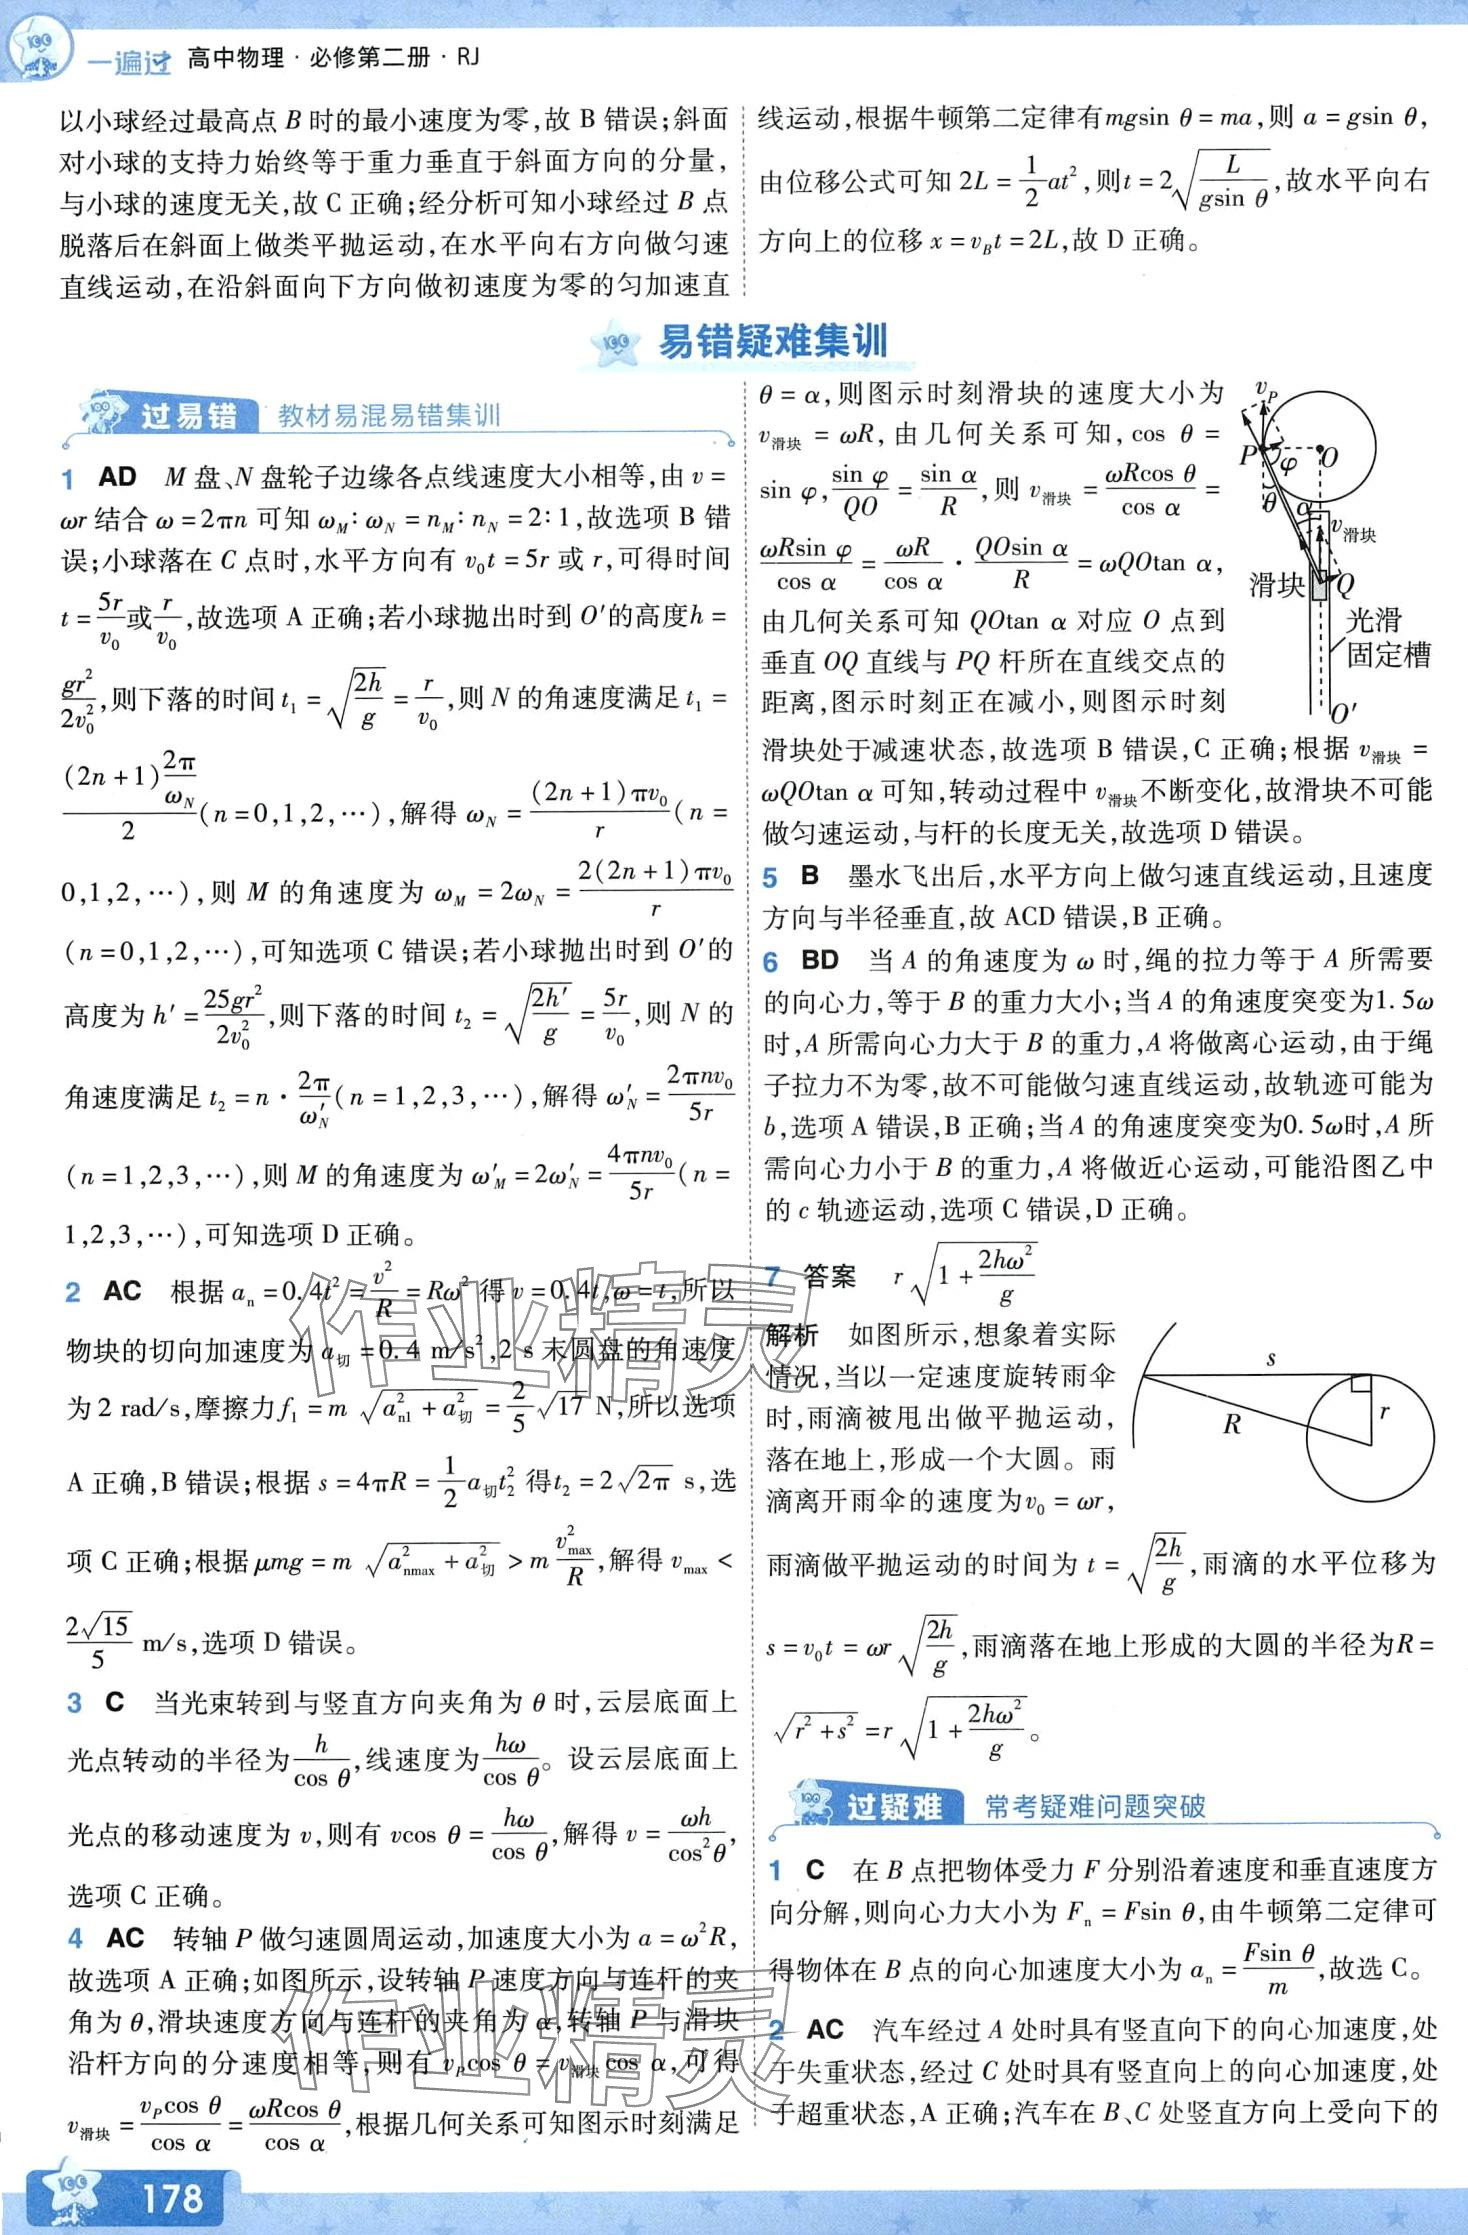 一遍过 高中物理·必修第二册·RJ
以小球经过最高点 B 时的最小速度为零,故 B 错误;斜面
对小球的支持力始终等于重力垂直于斜面方向的分量,
与小球的速度无关,故 C 正确;经分析可知小球经过 B 点
脱落后在斜面上做类平抛运动,在水平向右方向做匀速
直线运动,在沿斜面向下方向做初速度为零的匀加速直
线运动,根据牛顿第二定律有mgsin θ = ma,则 a = gsin θ,
由位移公式可知 2L = 1/2 at²,则t = 2√(L/(gsin θ)),故水平向右
方向上的位移 x = v_B t = 2L,故 D 正确。
易错疑难集训
过易错 教材易混易错集训
1 AD M 盘、N 盘轮子边缘各点线速度大小相等,由 v =
ωr 结合 ω = 2πn 可知 ω_M∶ω_N = n_M∶n_N = 2∶1,故选项 B 错
误;小球落在 C 点时,水平方向有 v₀t = 5r 或 r,可得时间
t = 5r/v₀ 或 r/v₀,故选项 A 正确;若小球抛出时到 O′的高度h =
gr²/(2v₀²),则下落的时间 t₁ = √(2h/g) = r/v₀,则 N 的角速度满足 t₁ =
((2n + 1)2π/ω_N)/2 (n = 0,1,2,…),解得 ω_N = (2n + 1)πv₀/r (n =
0,1,2,…),则 M 的角速度为 ω_M = 2ω_N = 2(2n + 1)πv₀/r
(n = 0,1,2,…),可知选项 C 错误;若小球抛出时到 O′的
高度为 h′ = 25gr²/(2v₀²),则下落的时间 t₂ = √(2h′/g) = 5r/v₀,则 N 的
角速度满足 t₂ = n · 2π/ω′_N (n = 1,2,3,…),解得 ω′_N = 2πnv₀/5r
(n = 1,2,3,…),则 M 的角速度为 ω′_M = 2ω′_N = 4πnv₀/5r (n =
1,2,3,…),可知选项 D 正确。
2 AC 根据 a_n = 0.4t² = v²/R = Rω² 得 v = 0.4t,ω = t,所以
物块的切向加速度为 a_切 = 0.4 m/s²,2 s 末圆盘的角速度
为 2 rad/s,摩擦力 f₁ = m√(a²_n1 + a²_切) = 2/5 √17 N,所以选项
A 正确,B 错误;根据 s = 4πR = 1/2 a_切 t₂² 得t₂ = 2√(2π) s,选
项 C 正确;根据 μmg = m√(a²_nmax + a²_切) > m v²_max/R,解得 v_max <
2√15/5 m/s,选项 D 错误。
3 C 当光束转到与竖直方向夹角为 θ 时,云层底面上
光点转动的半径为 h/cos θ,线速度为 hω/cos θ。设云层底面上
光点的移动速度为 v,则有 vcos θ = hω/cos θ,解得 v = ωh/cos²θ,
选项 C 正确。
4 AC 转轴 P 做匀速圆周运动,加速度大小为 a = ω²R,
故选项 A 正确;如图所示,设转轴 P 速度方向与连杆的夹
角为 θ,滑块速度方向与连杆的夹角为 α,转轴 P 与滑块
沿杆方向的分速度相等,则有 v_P cos θ = v_滑块 cos α,可得
v_滑块 = v_P cos θ/cos α = ωRcos θ/cos α,根据几何关系可知图示时刻满足
θ = α,则图示时刻滑块的速度大小为
v_滑块 = ωR,由几何关系可知,cos θ =
sin φ,sin φ/QO = sin α/R,则 v_滑块 = ωRcos θ/cos α =
ωRsin φ/cos α = ωR/cos α · QOsin α/R = ωQOtan α,
由几何关系可知 QOtan α 对应 O 点到
垂直 OQ 直线与 PQ 杆所在直线交点的
距离,图示时刻正在减小,则图示时刻
滑块处于减速状态,故选项 B 错误,C 正确;根据 v_滑块 =
ωQOtan α 可知,转动过程中 v_滑块 不断变化,故滑块不可能
做匀速运动,与杆的长度无关,故选项 D 错误。
v_P
P
φ
O
θ
α
v_滑块
滑块
Q
光滑
固定槽
O′
5 B 墨水飞出后,水平方向上做匀速直线运动,且速度
方向与半径垂直,故 ACD 错误,B 正确。
6 BD 当 A 的角速度为 ω 时,绳的拉力等于 A 所需要
的向心力,等于 B 的重力大小;当 A 的角速度突变为1.5ω
时,A 所需向心力大于 B 的重力,A 将做离心运动,由于绳
子拉力不为零,故不可能做匀速直线运动,故轨迹可能为
b,选项 A 错误,B 正确;当 A 的角速度突变为0.5ω时,A 所
需向心力小于 B 的重力,A 将做近心运动,可能沿图乙中
的 c 轨迹运动,选项 C 错误,D 正确。
7 答案 r√(1 + 2hω²/g)
解析 如图所示,想象着实际
情况,当以一定速度旋转雨伞
时,雨滴被甩出做平抛运动,
落在地上,形成一个大圆。雨
滴离开雨伞的速度为v₀ = ωr,
s
R
r
雨滴做平抛运动的时间为 t = √(2h/g),雨滴的水平位移为
s = v₀t = ωr√(2h/g),雨滴落在地上形成的大圆的半径为R =
√(r² + s²) = r√(1 + 2hω²/g)。
过疑难 常考疑难问题突破
1 C 在 B 点把物体受力 F 分别沿着速度和垂直速度方
向分解,则向心力大小为 F_n = Fsin θ,由牛顿第二定律可
得物体在 B 点的向心加速度大小为 a_n = Fsin θ/m,故选 C。
2 AC 汽车经过 A 处时具有竖直向下的向心加速度,处
于失重状态,经过 C 处时具有竖直向上的向心加速度,处
于超重状态,A 正确;汽车在 B、C 处竖直方向上受向下的
178
作业精灵
作业精灵